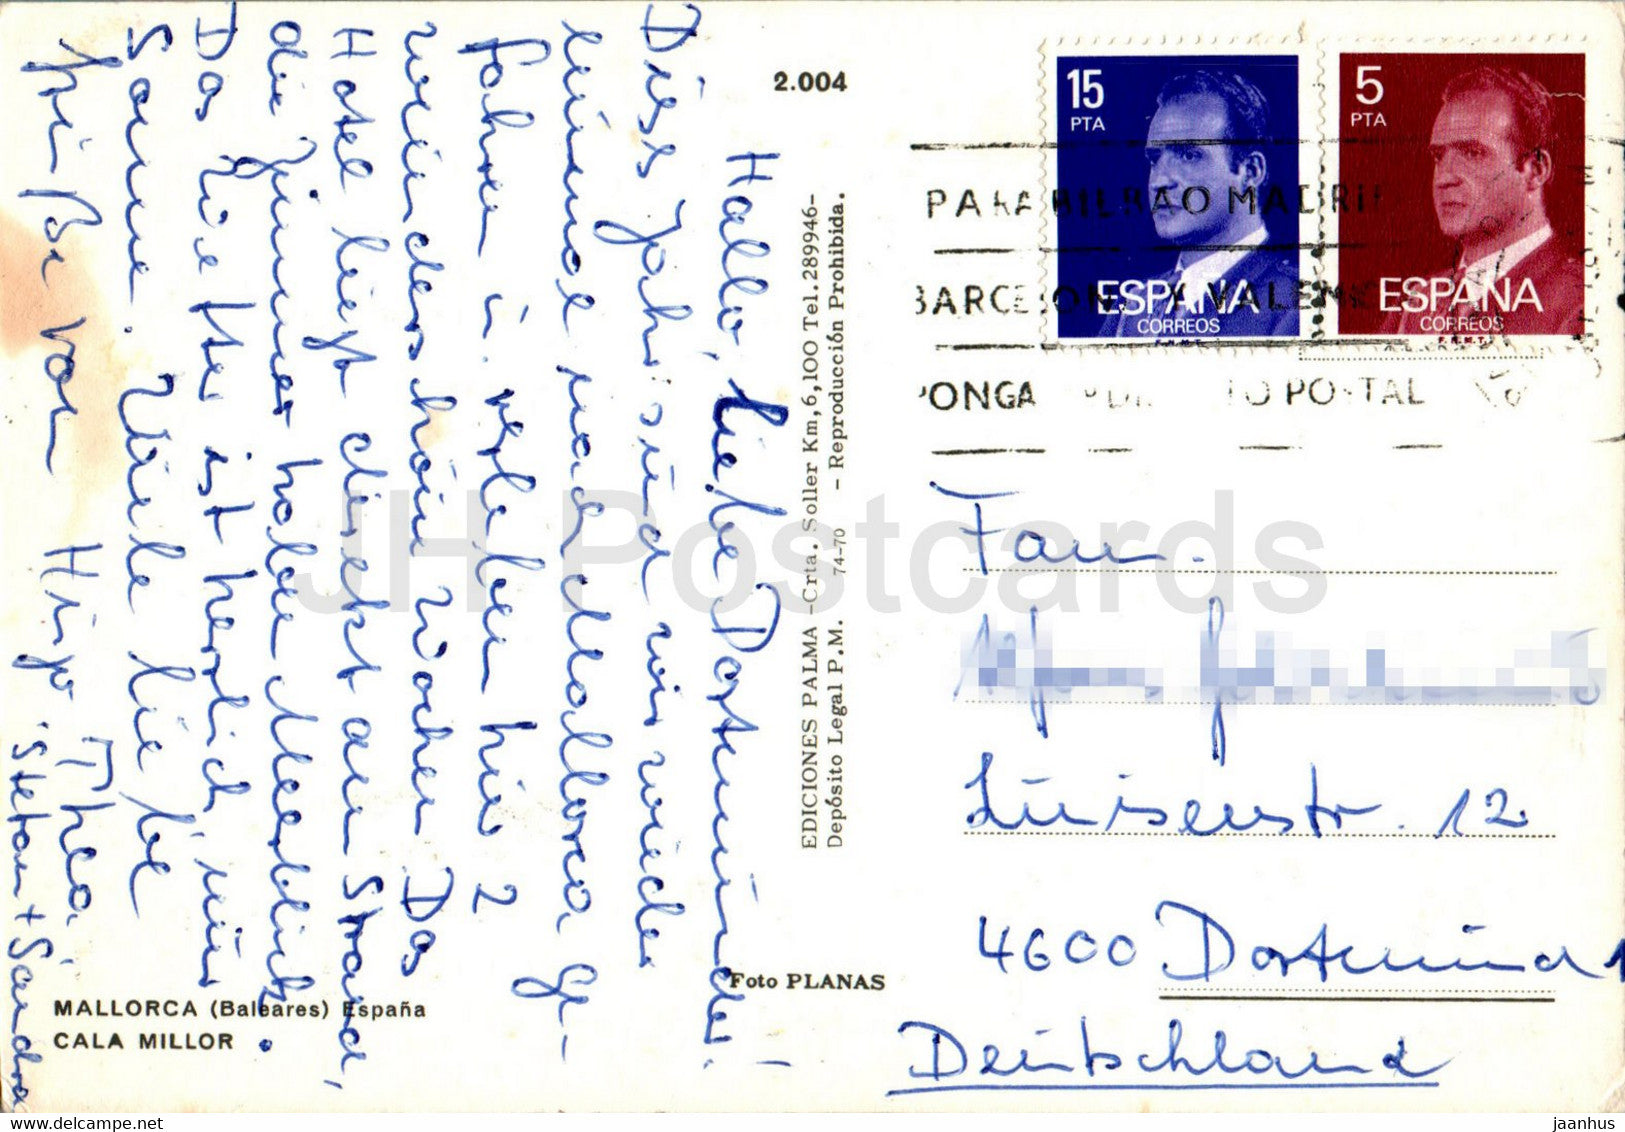 Hallo, liebe Dortmunder!
Dies Jahr sind wir wieder
einmal nach Mallorca ge-
fahren u. verleben hier 2
wunderschöne Wochen. Das
Hotel liegt direkt am Strand,
die Zimmer haben Meerblick.
Das Wetter ist herrlich, nur
Sonne. Viele liebe
Grüße von Hugo, Thea,
Stefan + Sandra
MALLORCA (Baleares) España
CALA MILLOR
2.004
EDICIONES PALMA -Crta. Soller Km, 6,100 Tel. 289946-
Depósito Legal P.M. 74-70 - Reproducción Prohibida.
Foto PLANAS
15
PTA
ESPAÑA
CORREOS
F.N.M.T.
5
PTA
ESPAÑA
CORREOS
F.N.M.T.
PARA BILBAO MADRID
BARCELONA Y VALENCIA
PONGA DISTRITO POSTAL
Fam.
Luisenstr. 12
4600 Dortmund 1
Deutschland
JH Postcards
jaanhus